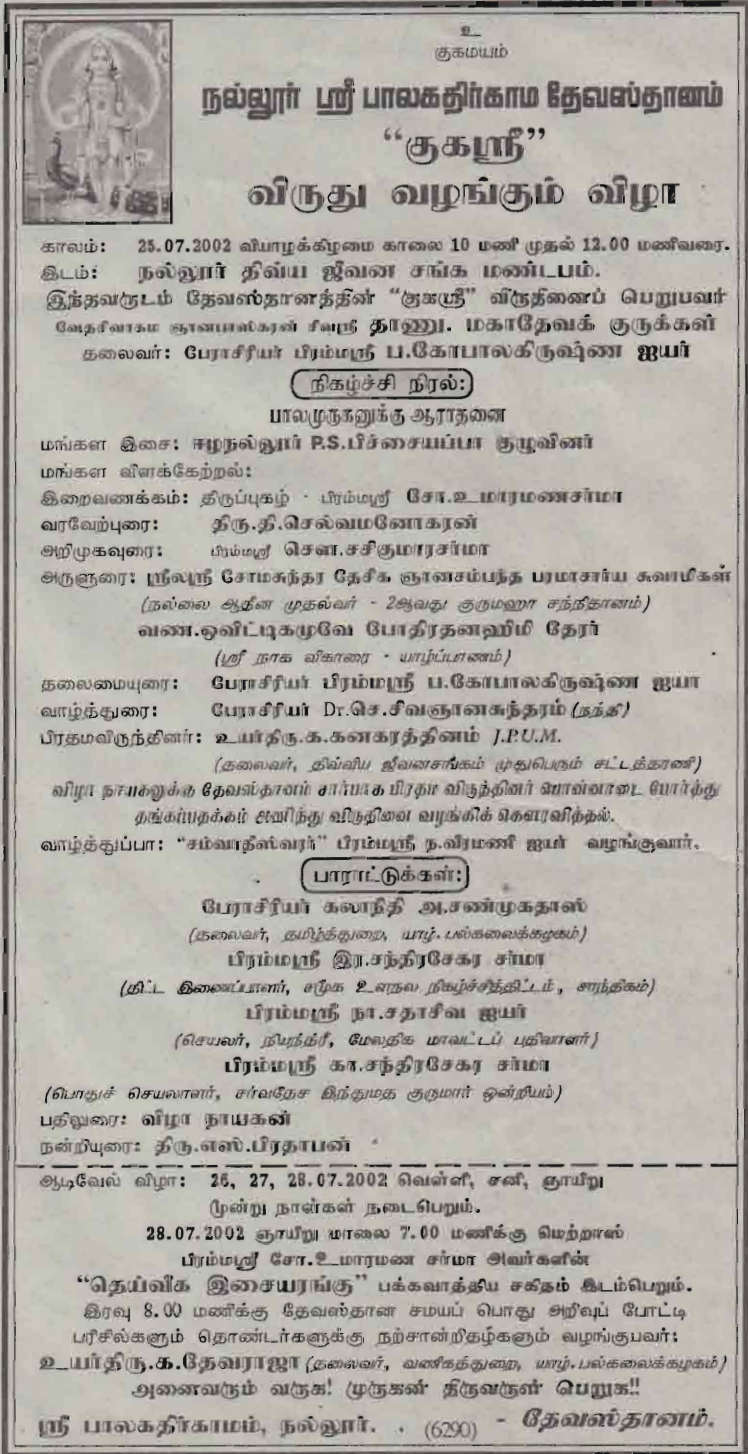 உ
குகமயம்
நல்லூர் ஸ்ரீ பாலகதிர்காம தேவஸ்தானம்
“குகஸ்ரீ”
விருது வழங்கும் விழா
காலம்: 25.07.2002 வியாழக்கிழமை காலை 10 மணி முதல் 12.00 மணிவரை.
இடம்: நல்லூர் திவ்ய ஜீவன சங்க மண்டபம்.
இந்தவருடம் தேவஸ்தானத்தின் “குகஸ்ரீ” விருதினைப் பெறுபவர்
வேதசிவாகம ஞானபாஸ்கரன் சிவஸ்ரீ தாணு. மகாதேவக் குருக்கள்
தலைவர்: பேராசிரியர் பிரம்மஸ்ரீ ப.கோபாலகிருஷ்ண ஐயர்
நிகழ்ச்சி நிரல்:
பாலமுருகனுக்கு ஆராதனை
மங்கள இசை: ஈழநல்லூர் P.S.பிச்சையப்பா குழுவினர்
மங்கள விளக்கேற்றல்:
இறைவணக்கம்: திருப்புகழ் - பிரம்மஸ்ரீ சோ.உமாரமணசர்மா
வரவேற்புரை: திரு.தி.செல்வமனோகரன்
அறிமுகவுரை: பிரம்மஸ்ரீ சௌ.சசிகுமாரசர்மா
அருளுரை: ஸ்ரீலஸ்ரீ சோமசுந்தர தேசிக ஞானசம்பந்த பரமாசார்ய சுவாமிகள்
(நல்லை ஆதீன முதல்வர் - 2ஆவது குருமஹா சந்நிதானம்)
வண.ஒவிட்டிகமுவே போதிரதனஹிமி தேரர்
(ஸ்ரீ நாக விகாரை - யாழ்ப்பாணம்)
தலைமையுரை: பேராசிரியர் பிரம்மஸ்ரீ ப.கோபாலகிருஷ்ண ஐயா
வாழ்த்துரை: பேராசிரியர் Dr.செ.சிவஞானசுந்தரம் (நந்தி)
பிரதமவிருந்தினர்: உயர்திரு.க.கனகரத்தினம் J.P.U.M.
(தலைவர், திவ்விய ஜீவனசங்கம் முதுபெரும் சட்டத்தரணி)
விழா நாயகனுக்கு தேவஸ்தானம் சார்பாக பிரதம விருந்தினர் பொன்னாடை போர்த்து
தங்கப்பதக்கம் அணிந்து விருதினை வழங்கிக் கௌரவித்தல்.
வாழ்த்துப்பா: “சம்வாதீஸ்வரர்” பிரம்மஸ்ரீ ந.வீரமணி ஐயர் வழங்குவார்.
பாராட்டுக்கள்:
பேராசிரியர் கலாநிதி அ.சண்முகதாஸ்
(தலைவர், தமிழ்த்துறை, யாழ். பல்கலைக்கழகம்)
பிரம்மஸ்ரீ இர.சந்திரசேகர சர்மா
(திட்ட இணைப்பாளர், சமூக உளநல நிகழ்ச்சித்திட்டம், சாந்திகம்)
பிரம்மஸ்ரீ நா.சதாசிவ ஐயர்
(செயலர், மேலதிக மாவட்டப் பதிவாளர்)
பிரம்மஸ்ரீ கா.சந்திரசேகர சர்மா
(பொதுச் செயலாளர், சர்வதேச இந்துமத குருமார் ஒன்றியம்)
பதிலுரை: விழா நாயகன்
நன்றியுரை: திரு.எஸ்.பிரதாபன்
ஆடிவேல் விழா: 26, 27, 28.07.2002 வெள்ளி, சனி, ஞாயிறு
மூன்று நாள்கள் நடைபெறும்.
28.07.2002 ஞாயிறு மாலை 7.00 மணிக்கு மெற்றாஸ்
பிரம்மஸ்ரீ சோ.உமாரமண சர்மா அவர்களின்
“தெய்வீக இசையரங்கு” பக்கவாத்திய சகிதம் இடம்பெறும்.
இரவு 8.00 மணிக்கு தேவஸ்தான சமயப் பொது அறிவுப் போட்டி
பரிசில்களும் தொண்டர்களுக்கு நற்சான்றிதழ்களும் வழங்குபவர்:
உயர்திரு.க.தேவராஜா (தலைவர், வணிகத்துறை, யாழ்.பல்கலைக்கழகம்)
அனைவரும் வருக! முருகன் திருவருள் பெறுக!!
ஸ்ரீ பாலகதிர்காமம், நல்லூர். (6290) - தேவஸ்தானம்.